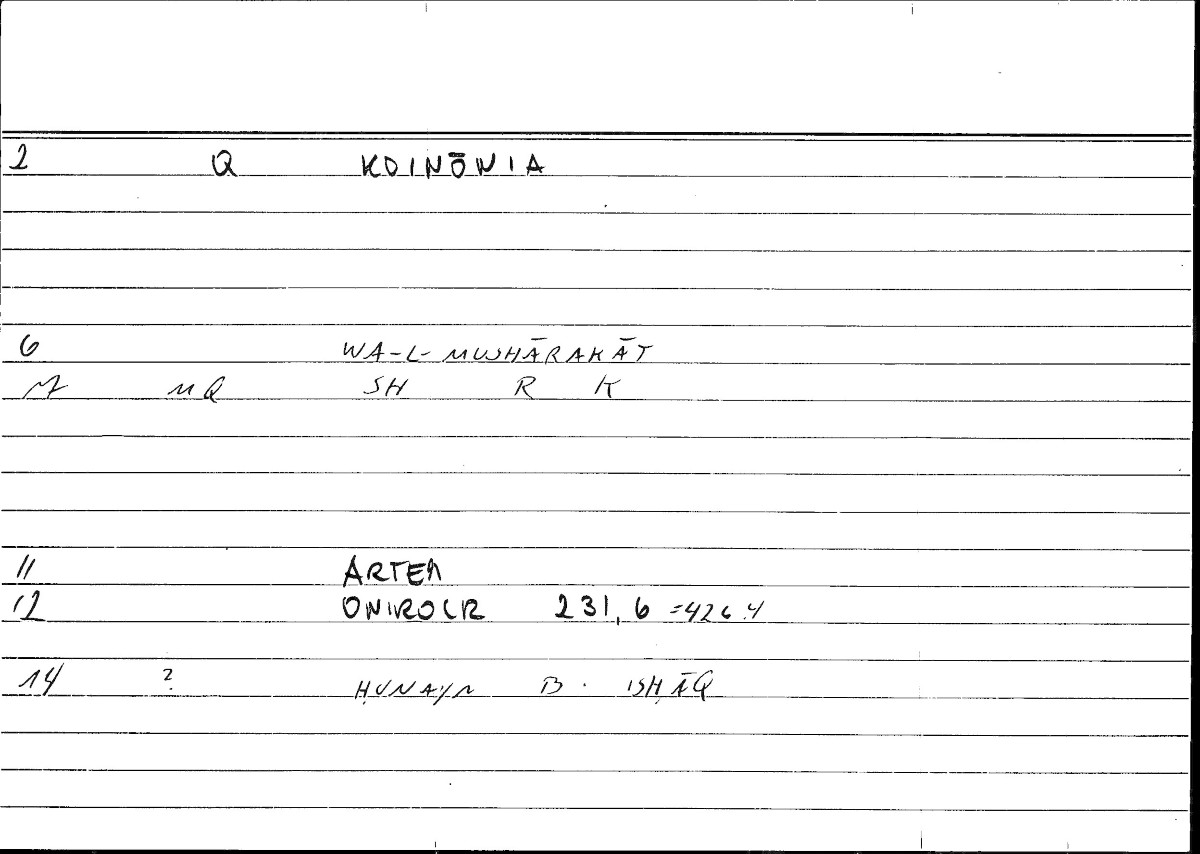 2 Q KOINŌNIA
6 WA-L-MUSHĀRAKĀT
M MQ SH R K
11 ARTEM
12 ONIROCR 231,6 =426.4
14 ? ḤUNAYN B. ISḤĀQ